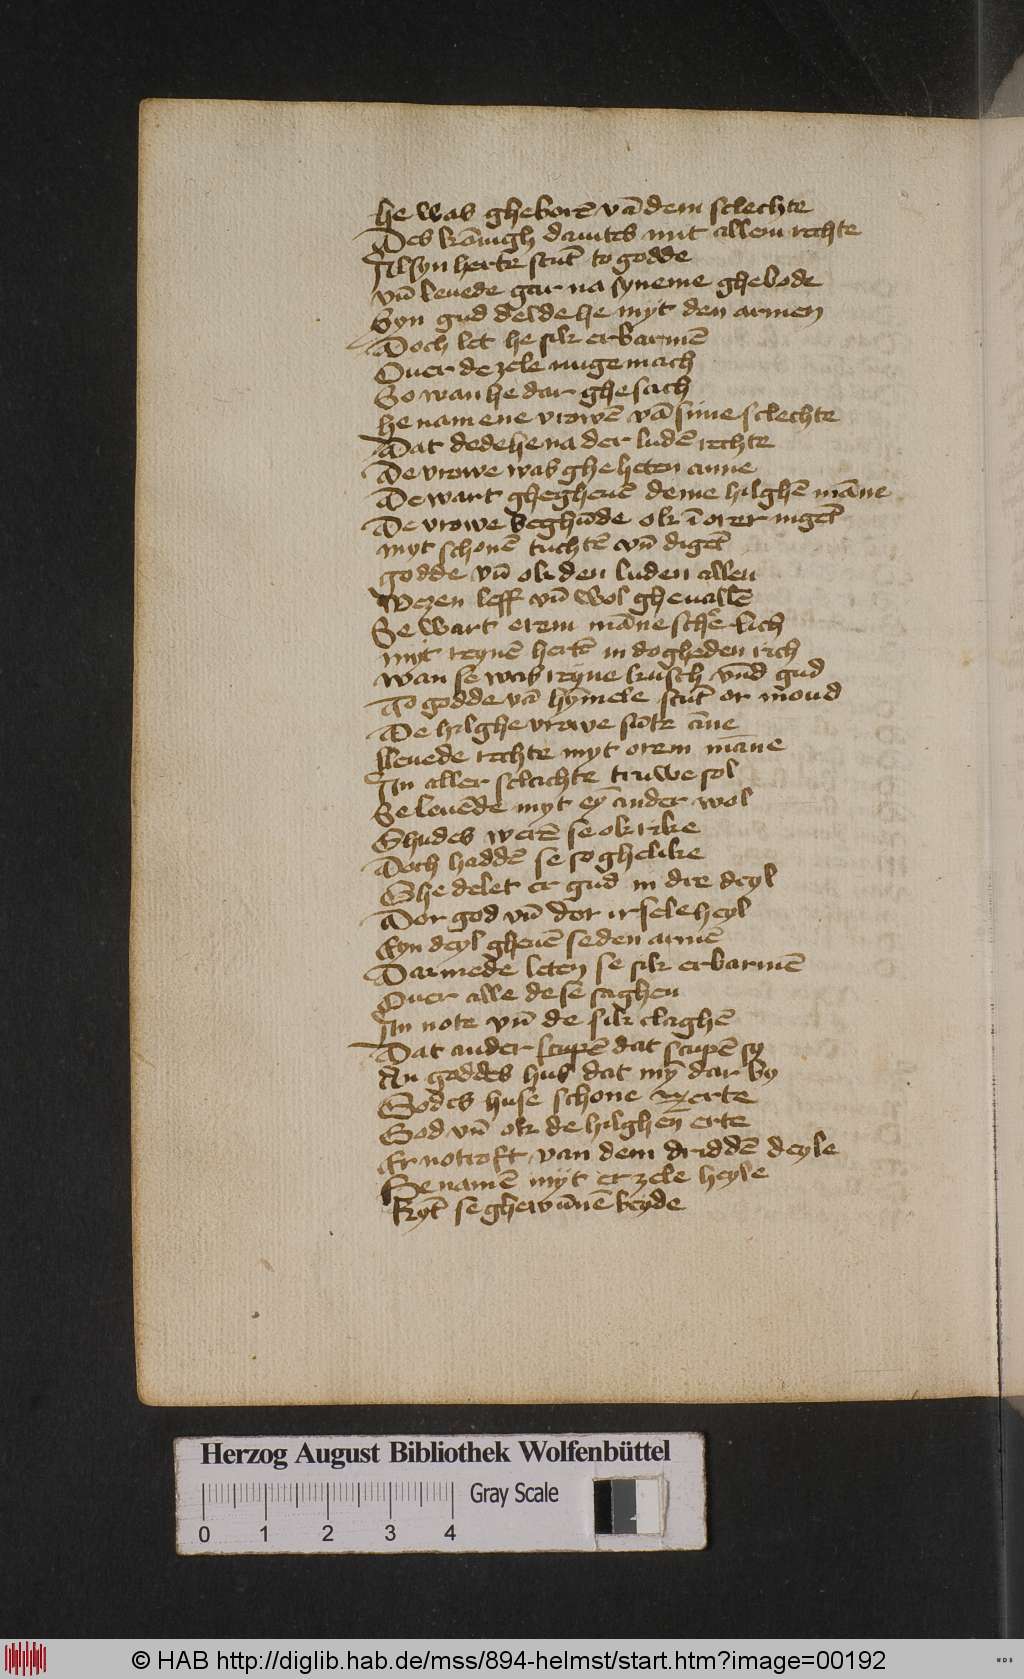 he was gheborē vā dem sclechte
Des kōnigh dauites mit allem rechte
Al syn herte stūt to godde
vn̄ leuede gar na syneme ghebode
Syn gud delde he myt den armen
Doch let he sik erbarmē
Ouer de zele nugemach
So wan he dar ghesach
he nam ene vrowē vā sime sclechte
Dat dede he na der ludē rechte
De vrowe was ghe heten anne
De wart gheghenē deme hilghē māne
De vrowe beghūde ok ī orer iogēt
myt schonē tuchtē vn̄ dogēt
godde vn̄ ok den luden allen
Wezen leff vn̄ wol gheuallē
Se wart erem māne
myt reynē hertē in dogheden rich
wan se was reyne kusch vnd gud
To godde vā hȳmele stūt or moud
De hilghe vrowe sūte āne
leuede rechte myt orem māne
In aller sclachte truwe sol
Se leuēde myt eȳ ander wol
Ghudes werē se ok rike
Doch haddē se so ghelike
Ghe delet er gud in dre deyl
Dor god vn̄ dor ir sele heyl
Eyn deyl gheuē se den armē
Darmede leten se sik erbarmē
Ouer alle de se saghen
In note vn̄ de sik claghē
Dat ander scupē dat scupē sy
An goddes hus dat mȳ dar by
Godes huse schone
God vn̄ ok de hilghen erte
Er notroft van dem driddē deyle
Se namē myt er zele heyle
se ghewūnē beyde
Herzog August Bibliothek Wolfenbüttel
Gray Scale
0 1 2 3 4
© HAB http://diglib.hab.de/mss/894-helmst/start.htm?image=00192